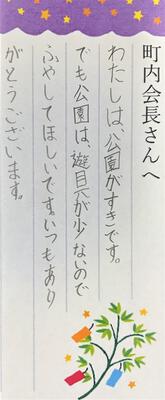 町内会長さんへ
わたしは、公園がすきです。
でも公園は、遊具が少ないので
ふやしてほしいです。いつもあり
がとうございます。